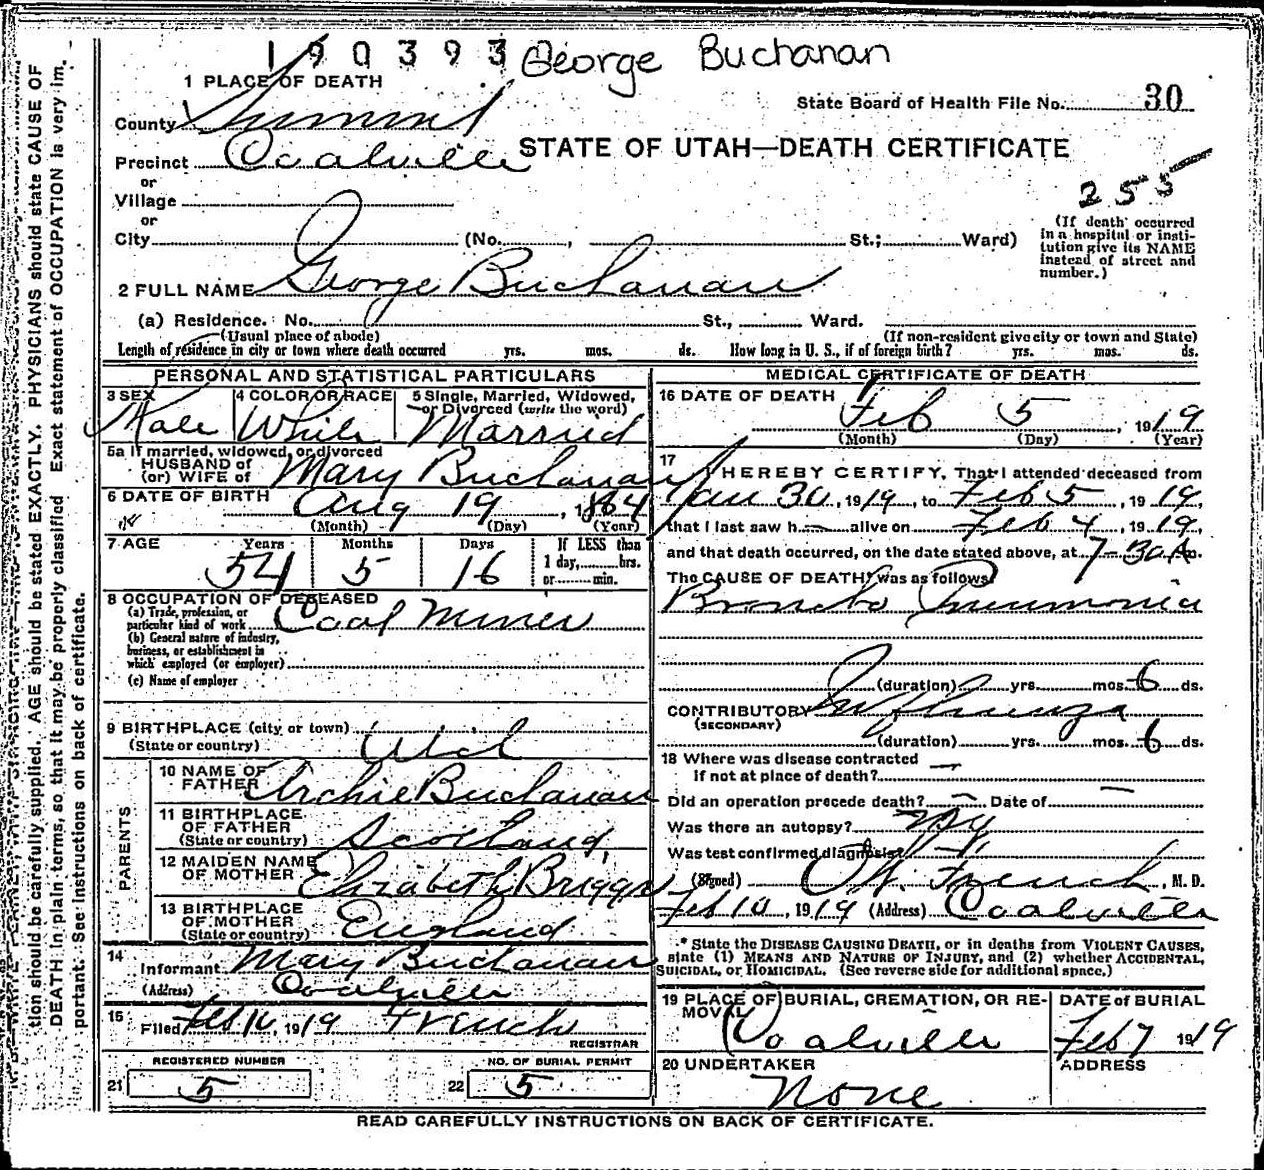 190393 George Buchanan
1 PLACE OF DEATH
State Board of Health File No. 30
County Summit
Precinct Coalville
STATE OF UTAH—DEATH CERTIFICATE
or
Village
255
or
City (No. , St.; Ward)
(If death occurred
in a hospital or insti-
tution give its NAME
instead of street and
number.)
2 FULL NAME George Buchanan
(a) Residence. No. St., Ward.
(Usual place of abode) (If non-resident give city or town and State)
Length of residence in city or town where death occurred yrs. mos. ds. How long in U. S., if of foreign birth? yrs. mos. ds.
PERSONAL AND STATISTICAL PARTICULARS
3 SEX 4 COLOR OR RACE 5 Single, Married, Widowed,
or Divorced (write the word)
Male White Married
5a If married, widowed, or divorced
HUSBAND of
(or) WIFE of Mary Buchanan
6 DATE OF BIRTH Aug 19, 1864
(Month) (Day) (Year)
7 AGE Years Months Days If LESS than
1 day, hrs.
or min.
54 5 16
8 OCCUPATION OF DECEASED
(a) Trade, profession, or
particular kind of work Coal Miner
(b) General nature of industry,
business, or establishment in
which employed (or employer)
(c) Name of employer
9 BIRTHPLACE (city or town)
(State or country) Utah
PARENTS
10 NAME OF
FATHER Archie Buchanan
11 BIRTHPLACE
OF FATHER
(State or country) Scotland
12 MAIDEN NAME
OF MOTHER Elizabeth Briggs
13 BIRTHPLACE
OF MOTHER
(State or country) England
14
Informant Mary Buchanan
(Address) Coalville
15
Filed Feb 10, 1919 French
REGISTRAR
REGISTERED NUMBER NO. OF BURIAL PERMIT
21 5 22 5
MEDICAL CERTIFICATE OF DEATH
16 DATE OF DEATH
Feb 5, 1919
(Month) (Day) (Year)
17
I HEREBY CERTIFY, That I attended deceased from
Jan 30, 1919, to Feb 5, 1919,
that I last saw h alive on Feb 4, 1919,
and that death occurred, on the date stated above, at 7-30 A m.
The CAUSE OF DEATH* was as follows:
Broncho Pneumonia
(duration) yrs. mos. 6 ds.
CONTRIBUTORY Influenza
(SECONDARY)
(duration) yrs. mos. 6 ds.
18 Where was disease contracted
if not at place of death?
Did an operation precede death? Date of
Was there an autopsy?
Was test confirmed diagnosis?
(Signed) French, M. D.
Feb 10, 1919 (Address) Coalville
* State the DISEASE CAUSING DEATH, or in deaths from VIOLENT CAUSES,
state (1) MEANS AND NATURE OF INJURY, and (2) whether ACCIDENTAL,
SUICIDAL, or HOMICIDAL. (See reverse side for additional space.)
19 PLACE OF BURIAL, CREMATION, OR RE-
MOVAL
Coalville
DATE of BURIAL
Feb 7 1919
20 UNDERTAKER ADDRESS
None
READ CAREFULLY INSTRUCTIONS ON BACK OF CERTIFICATE.
tion should be carefully supplied. AGE should be stated EXACTLY. PHYSICIANS should state CAUSE OF
DEATH in plain terms, so that it may be properly classified Exact statement of OCCUPATION is very im.
portant. See instructions on back of certificate.